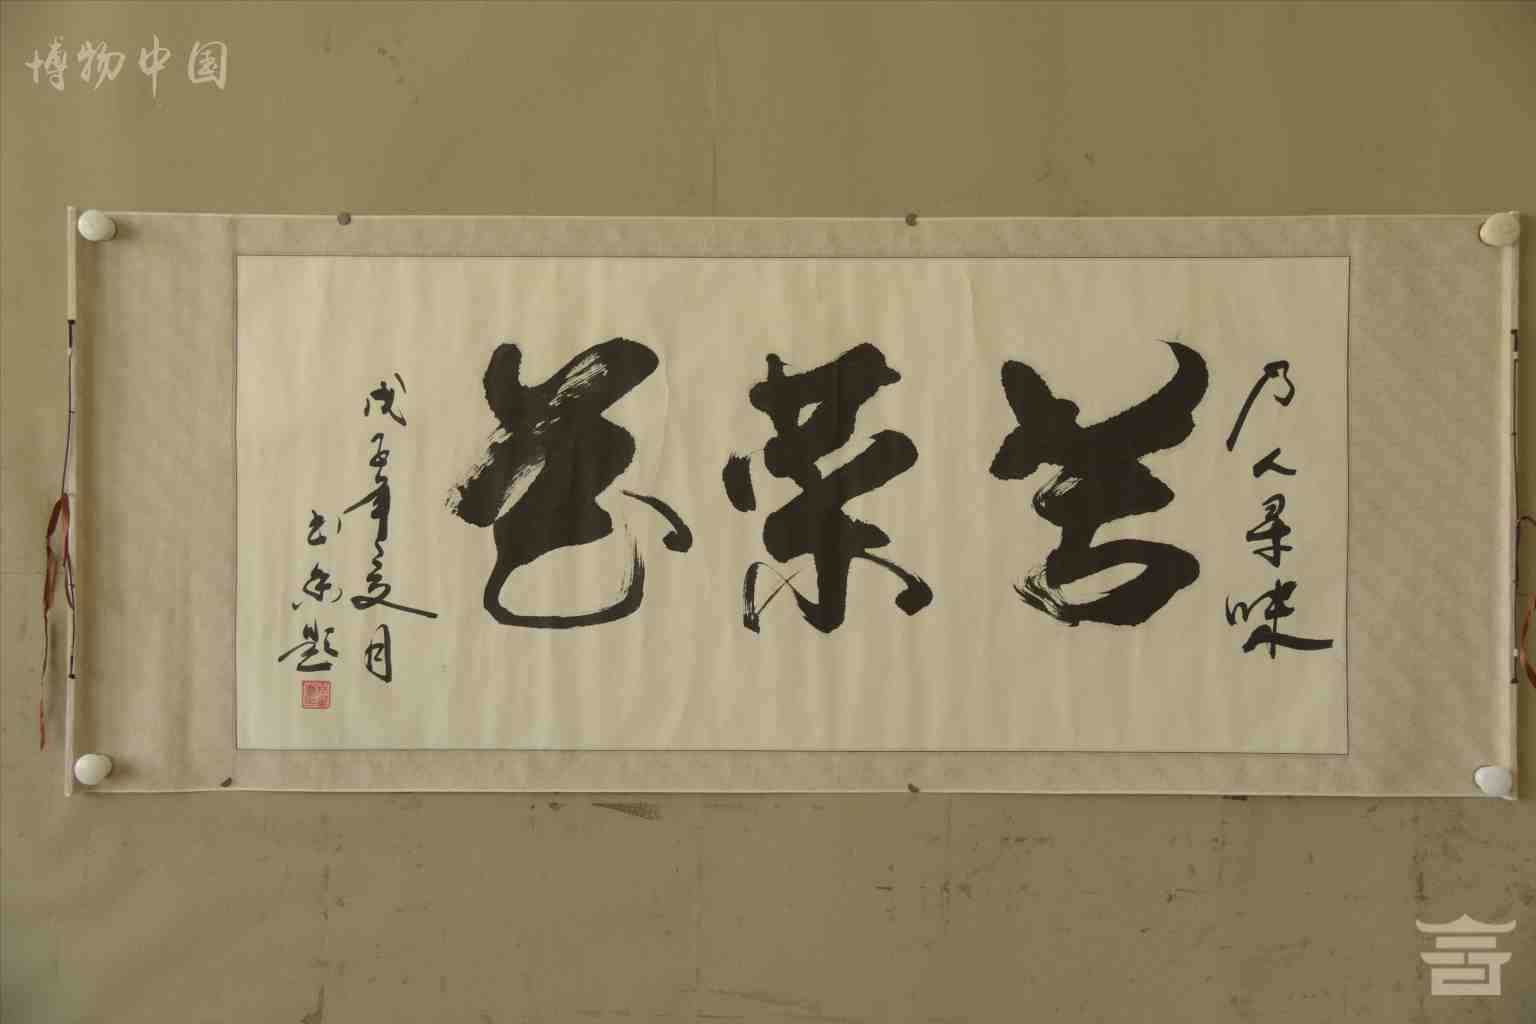 博物中国
乃人寻味
苦菜花
戊子年夏月
题